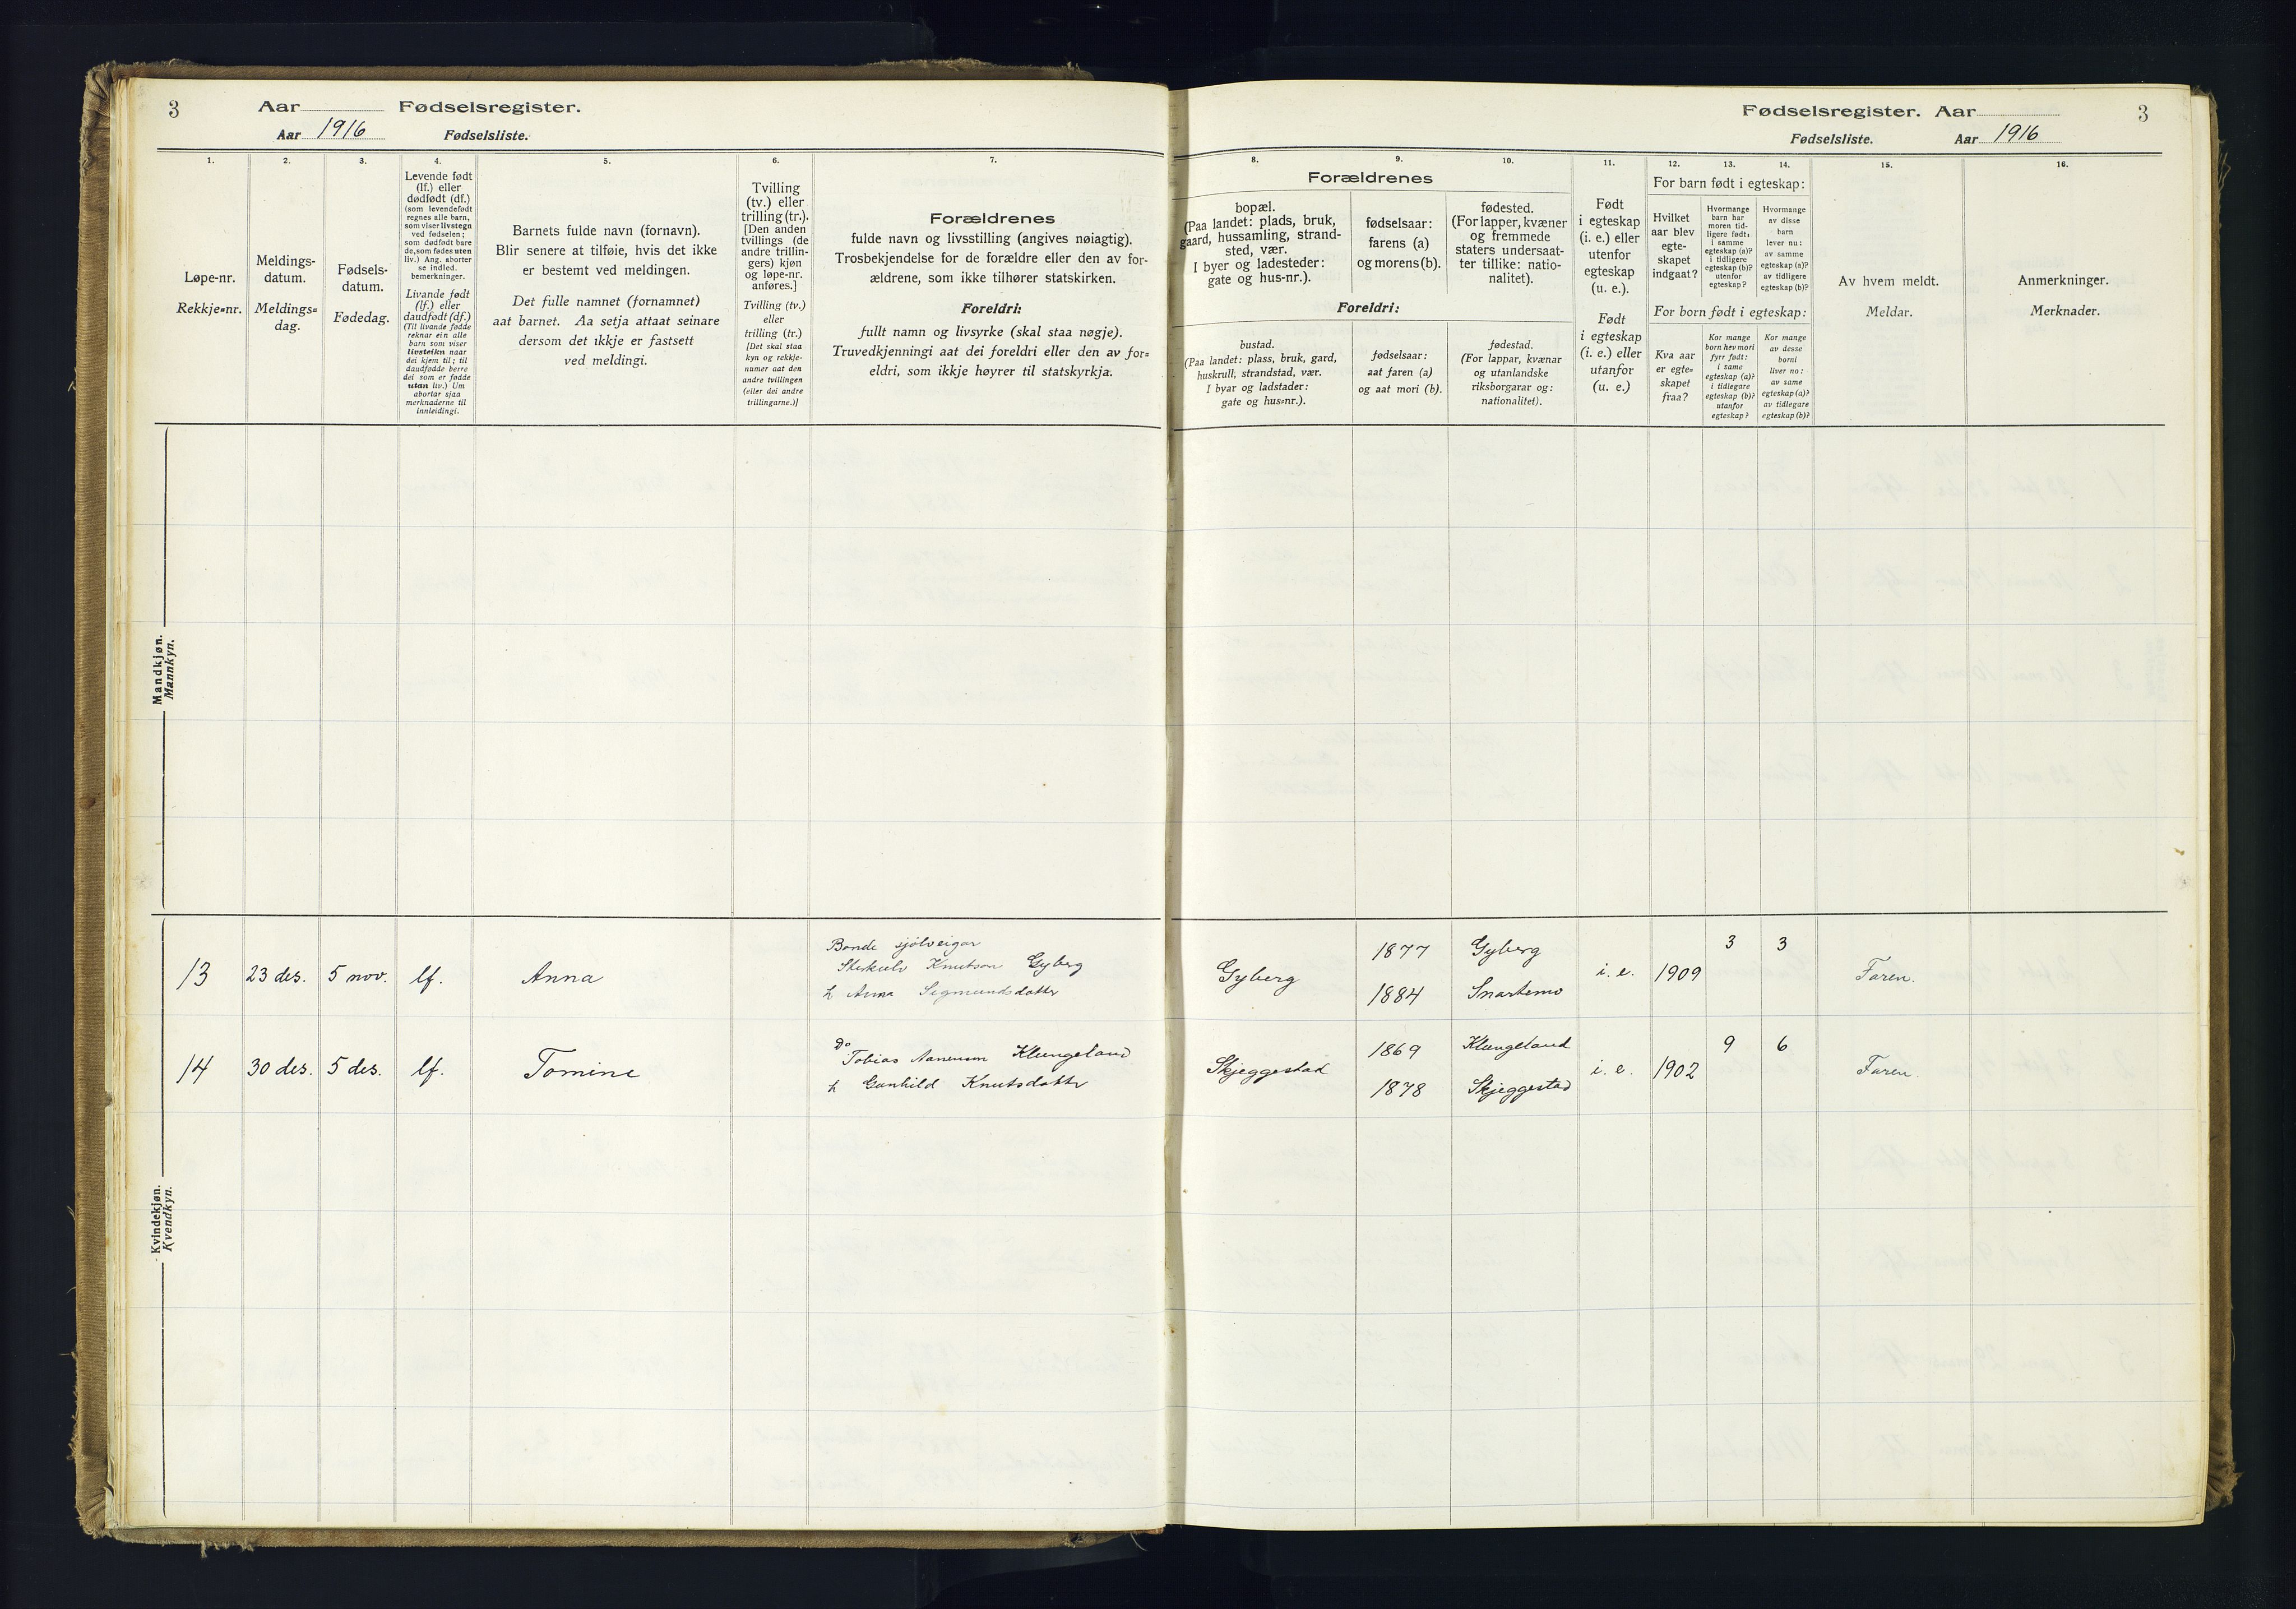 3 Aar Fødselsregister.
Aar 1916 Fødselsliste.
1.
2.
3.
4.
5.
6.
7.
Løpe-nr.
Rekkje=nr.
Meldings-
datum.
Meldings=
dag.
Fødsels-
datum.
Fødedag.
Levende født
(lf.) eller
dødfødt (df.)
(som levendefødt
regnes alle barn,
som viser livstegn
ved fødselen;
som dødfødt bare
de, som fødes uten
liv.) Ang. aborter
se indled.
bemerkninger.
Livande født
(lf.) eller
daudfødt (df.)
(Til livande fødde
reknar ein alle
barn som viser
livsteikn naar
dei kjem til; til
daudfødde berre
dei som er fødde
utan liv.) Um
abortar sjaa
merknaderne til
innleidingi.
Barnets fulde navn (fornavn).
Blir senere at tilføie, hvis det ikke
er bestemt ved meldingen.
Det fulle namnet (fornamnet)
aat barnet. Aa setja attaat seinare
dersom det ikkje er fastsett
ved meldingi.
Tvilling
(tv.) eller
trilling (tr.).
[Den anden
tvillings (de
andre trillin-
gers) kjøn
og løpe-nr.
anføres.]
Tvilling (tv.)
eller
trilling (tr.)
[Det skal staa
kyn og rekkje-
numer aat den
andre tvillingen
(eller dei andre
trillingarne.)]
Forældrenes
fulde navn og livsstilling (angives nøiagtig).
Trosbekjendelse for de forældre eller den av for-
ældrene, som ikke tilhører statskirken.
Foreldri:
fullt namn og livsyrke (skal staa nøgje).
Truvedkjenningi aat dei foreldri eller den av for=
eldri, som ikkje høyrer til statskyrkja.
Mandkjøn.
Mannkyn.
Bonde sjølveigar
Knutson Gyberg
13 23 des. 5 nov. lf. Anna
h Anna Sigmundsdotter
do
Tobias Aanensen Klungeland
14 30 des. 5 des. lf. Tomine
h Gunhild Knutsdotter
Kvindekjøn.
Kvendkyn.
Fødselsregister. Aar 3
Fødselsliste. Aar 1916
8.
9.
10.
11.
12.
13.
14.
15.
16.
Forældrenes
bopæl.
(Paa landet: plads, bruk,
gaard, hussamling, strand-
sted, vær.
I byer og ladesteder:
gate og hus-nr.).
fødselsaar:
farens (a)
og morens (b).
fødested.
(For lapper, kvæner
og fremmede
staters undersaat-
ter tillike: natio-
nalitet).
Foreldri:
bustad.
(Paa landet: plass, bruk, gard,
huskrull, strandstad, vær.
I byar og ladstader:
gate og hus=nr.).
fødselsaar:
aat faren (a)
og aat mori (b).
fødestad.
(For lappar, kvænar
og utanlandske
riksborgarar og:
nationalitet).
Født
i egteskap
(i. e.) eller
utenfor
egteskap
(u. e.).
Født
i egteskap
(i. e.) eller
utanfor
(u. e.)
For barn født i egteskap:
Hvilket
aar blev
egte-
skapet
indgaat?
Hvormange
barn har
moren tid-
ligere født:
i samme
egteskap (a)?
i tidligere
egteskap (b)?
utenfor
egteskap?
Hvormange
av disse
barn
lever nu:
av samme
egteskap (a)?
av tidligere
egteskap (b)?
For born født i egteskap:
Kva aar
er egte=
skapet
fraa?
Kor mange
born hev mori
fyrr født:
i same
egteskap (a)?
i tidlegare
egteskap (b)?
utanfor
egteskap?
Kor mange
av desse
borni
liver no:
av same
egteskap (a)?
av tidlegare
egteskap (b)?
Av hvem meldt.
Meldar.
Anmerkninger.
Merknader.
1877 Gyberg 3 3
Gyberg i. e. 1909 Faren.
1884 Snartemo
1869 Klungeland 9 6
Skjeggestad i. e. 1902 Faren.
1878 Skjeggestad